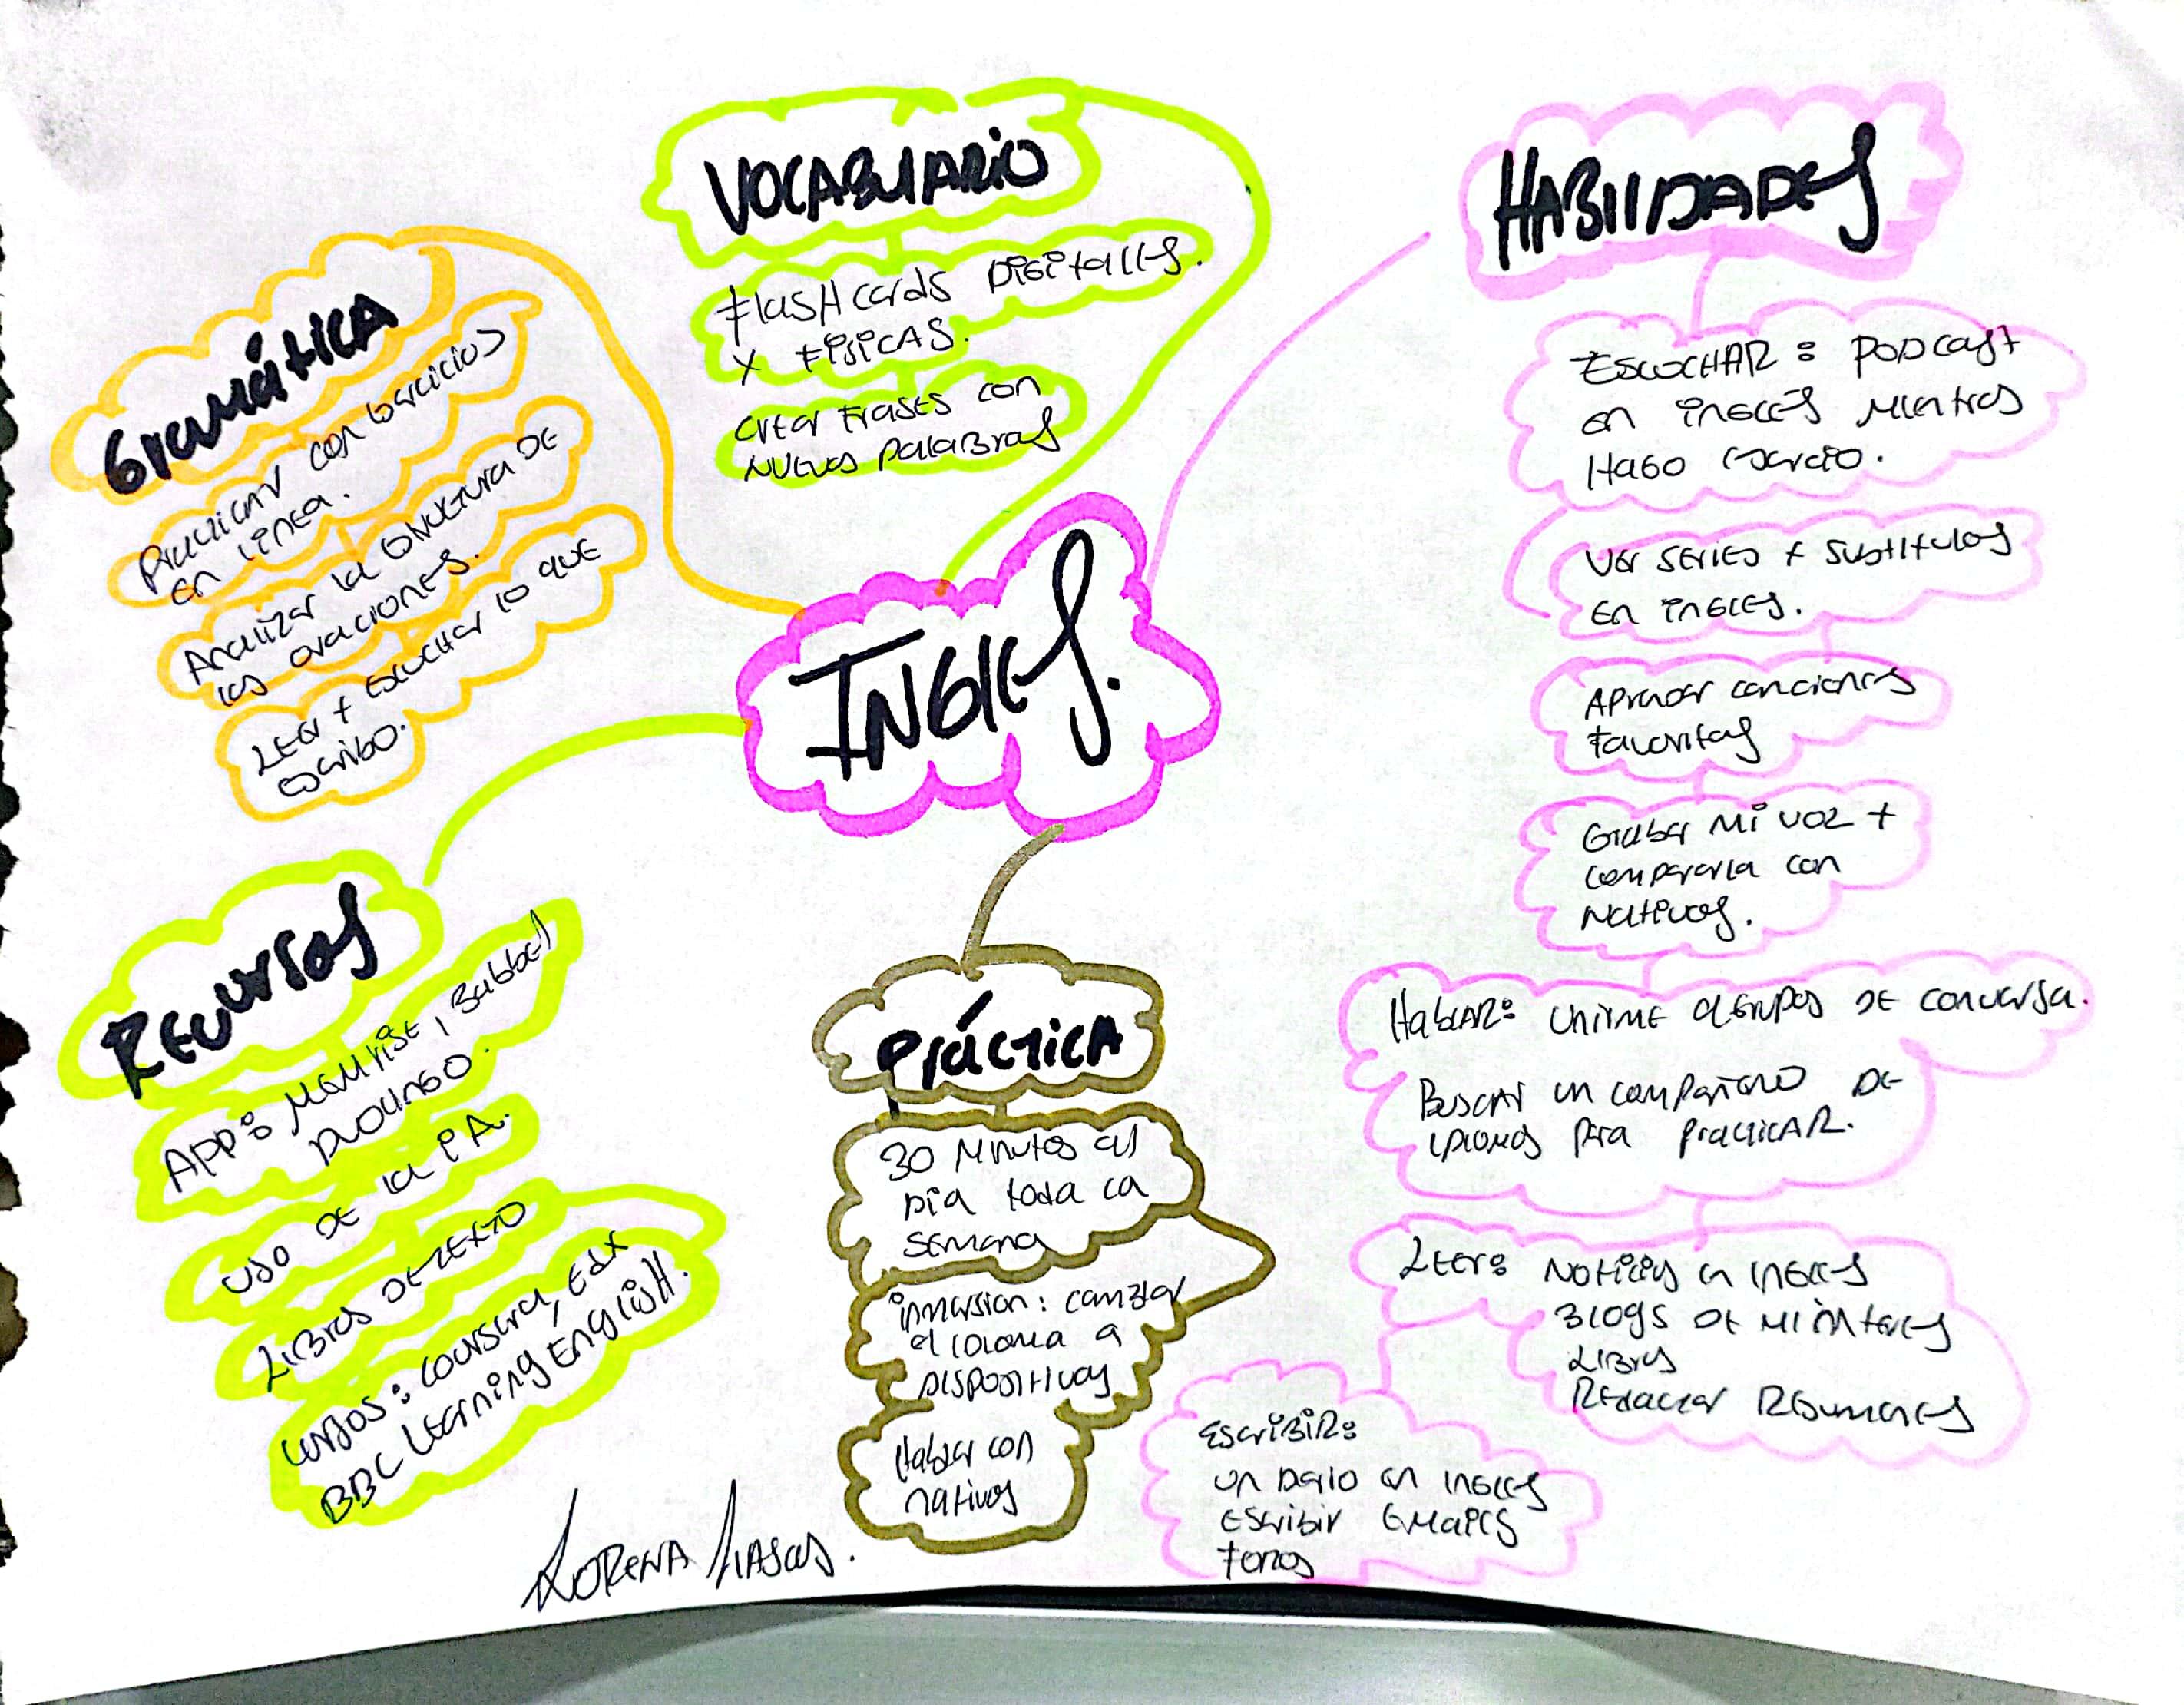 VOCABULARIO
Flashcards Digitales.
Y Físicas.
Crear Frases con
Nuevas Palabras
Gramática
Practicar con
en línea.
Analizar la DE
las oraciones.
Leer + Escuchar lo que
escribo.
HABILIDADES
ESCUCHAR: PODCAST
en inglés Mientras
Hago
Ver SERIES + Subtitulos
En ingles.
Aprender canciones
Favoritas
Grabar Mi voz +
compararla con
Nativos.
Hablar: Unirme a Grupos DE conversa.
Buscar un compañero DE
idiomas para practicar.
Leer: Noticias en ingles
Blogs de Mi interes
Libros
Redactar Resumenes
Escribir:
un Dario en ingles
Escribir Emails
Foros
INGLES.
Recursos
APP: Memrise, Babbel
Duolingo.
USO DE la iA.
Libros DE TEXTO
Cursos: Coursera, Edx
BBC Learning English.
Práctica
30 Minutos al
Dia toda la
semana
inmersion: cambiar
el idioma a
Dispositivos
Hablar con
nativos
Lorena